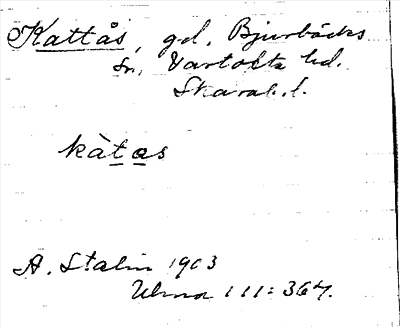 Kattås, gd. Bjurbäcks
sn, Vartofta hd.
Skarab. l.
kàtas
A. Stalin 1903
Ulma 111:367.